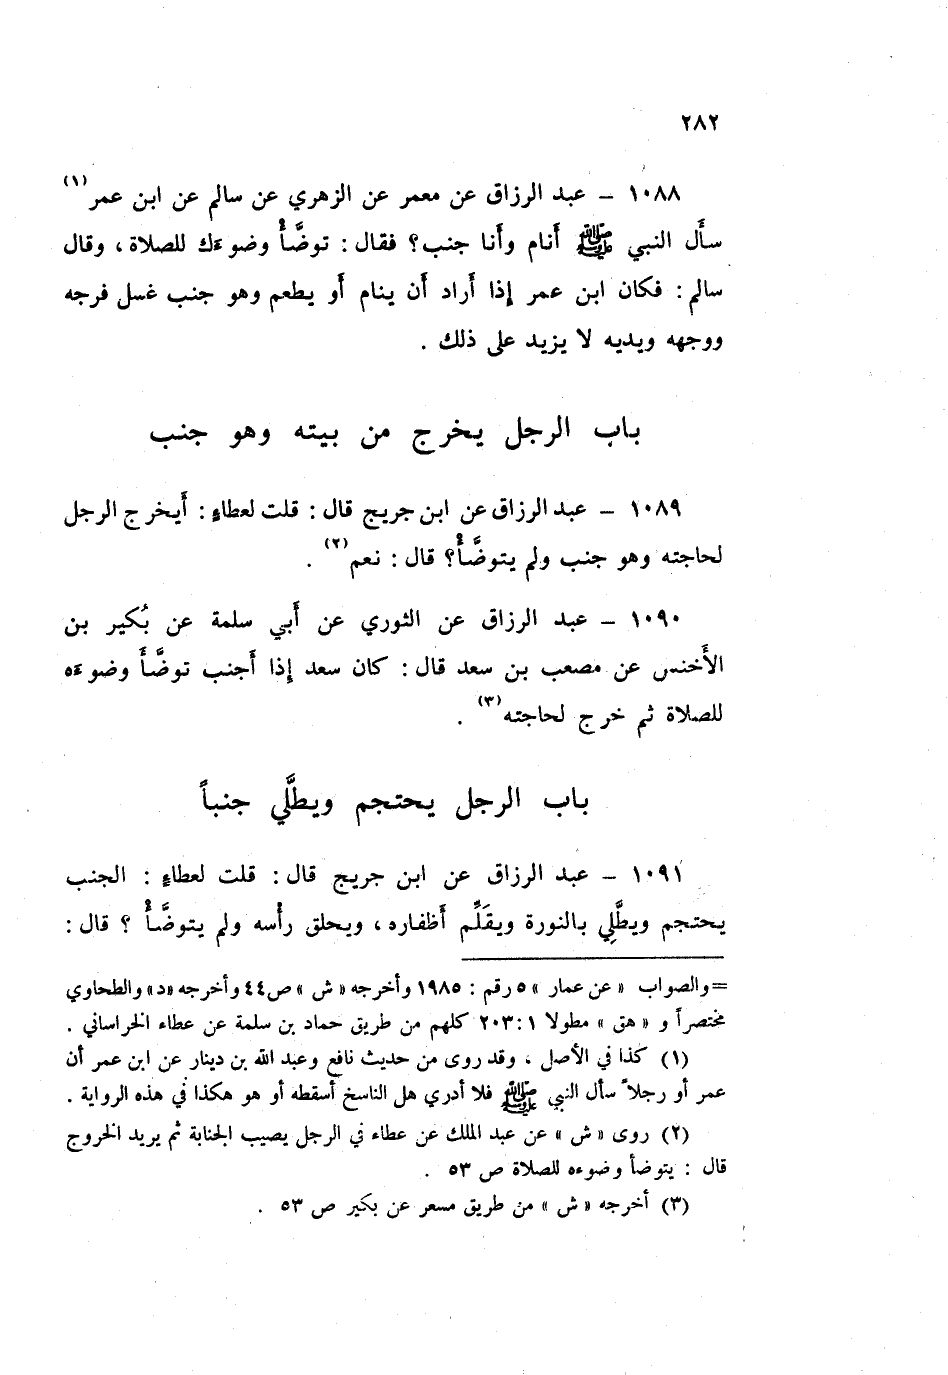 ٢٨٢
١٠٨٨ – عبد الرزاق عن معمر عن الزهري عن سالم عن ابن عمر(١)
سأَل النبي ﷺ أَنام وأَنا جنب؟ فقال : توضَّأْ وضوءك للصلاة ، وقال
سالم : فكان ابن عمر إِذا أَراد أَن ينام أَو يطعم وهو جنب غسل فرجه
ووجهه ويديه لا يزيد على ذلك .
باب الرجل يخرج من بيته وهو جنب
١٠٨٩ – عبد الرزاق عن ابن جريج قال : قلت لعطاءٍ : أَيخرج الرجل
لحاجته وهو جنب ولم يتوضَّأْ؟ قال : نعم(٢) .
١٠٩٠ – عبد الرزاق عن الثوري عن أَبي سلمة عن بُكير بن
الأَخنس عن مصعب بن سعد قال : كان سعد إِذا أَجنب توضَّأَ وضوءه
للصلاة ثم خرج لحاجته(٣) .
باب الرجل يحتجم ويطلَّي جنباً
١٠٩١ – عبد الرزاق عن ابن جريج قال : قلت لعطاءٍ : الجنب
يحتجم ويطَّلِي بالنورة ويقَلِّم أَظفاره ، ويحلق رأْسه ولم يتوضَّأْ ؟ قال :
=والصواب « عن عمار » ٥ رقم : ١٩٨٥ وأخرجه « ش » ص٤٤ وأخرجه «د» والطحاوي
مختصراً و « هق » مطولا ١ : ٢٠٣ كلهم من طريق حماد بن سلمة عن عطاء الخراساني .
(١) كذا في الأصل ، وقد روى من حديث نافع وعبد الله بن دينار عن ابن عمر أن
عمر أو رجلاً سأل النبي ﷺ فلا أدري هل الناسخ أسقطه أو هو هكذا في هذه الرواية .
(٢) روى « ش » عن عبد الملك عن عطاء في الرجل يصيب الجنابة ثم يريد الخروج
قال : يتوضأ وضوءه للصلاة ص ٥٣ .
(٣) أخرجه « ش » من طريق مسعر عن بكير ص ٥٣ .